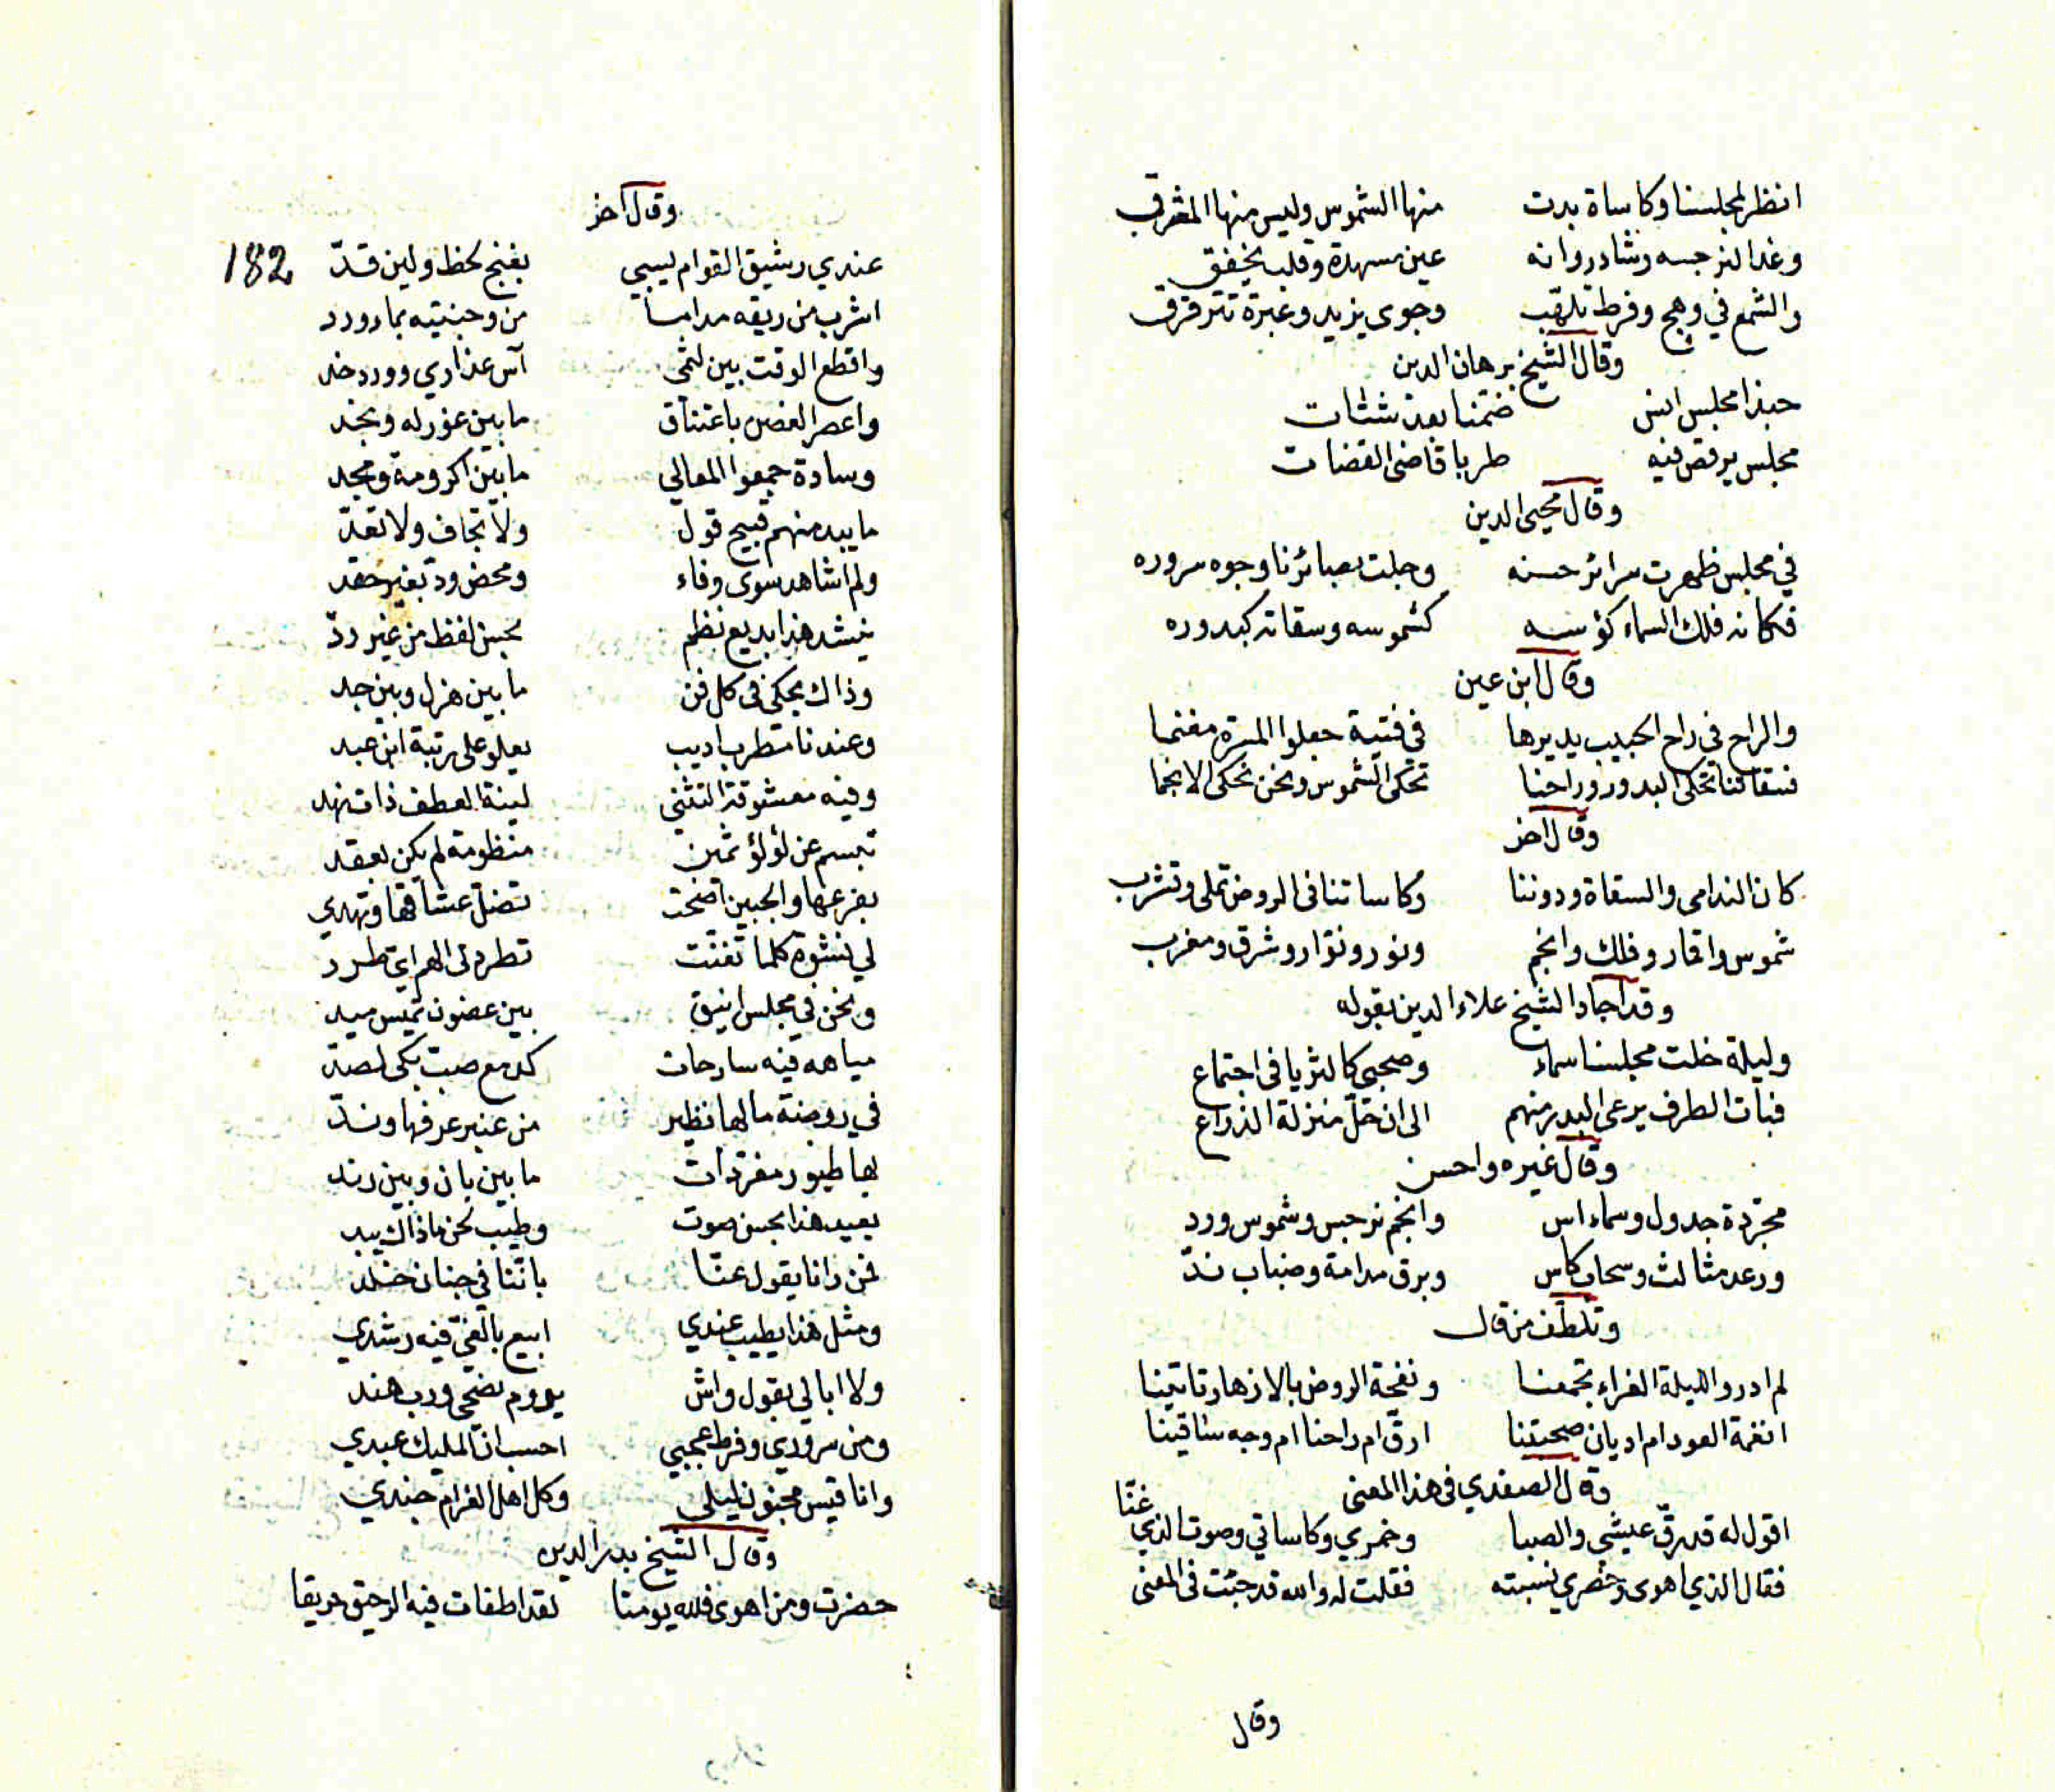 انظر لمجلسنا وكاساة بدت منها الشموس وليس منها المشرق
وغدا لنرجسه وشادروانه عين مسهدة وقلب يخفق
والشمع في وهج وفرط تلهّب وجوى يزيد وعبرة تترقرق
وقال الشيخ برهان الدين
حبذا مجلس انس ضمّنا بعد شتات
مجلس يرقص فيه طربا قاضى القضات
وقال محيى الدين
في مجلس ظهرت سرائر حسنه وجلت بصائرنا وجوه سروره
فكانه فلك السماء كؤسه كشموسه وسقاته كبدوره
وقال ابن عين
والراح في راح الحبيب يديرها في فتية جعلوا المسرة مغنما
فسقاتنا تحكى البدور وراحنا تحكى الشموس ونحن نحكى الانجما
وقال اخر
كان الندامى والسقاة ودوننا وكاساتنا فى الروض تملى وتشرب
شموس واقمار وفلك وانجم ونور ونوّار وشرق ومغرب
وقد اجاد الشيخ علاء الدين بقوله
وليلة خلت مجلسنا سماء وصحبى كالثريا فى اجتماع
فبات الطرف يرعى البدر منهم الى ان حلّ منزلة الذراع
وقال غيره واحسن
مجرّدة جدول وسماء اس وانجم نرجس وشموس ورد
ورعد مثالث وسحاب كاس وبرق مدامة وضباب ندّ
وتلطف من قال
لم ادر والليلة الغراء تجمعنا ونفحة الروض بالازهار تاتينا
انغمة العود ام اديان صحبتنا ارقّ ام راحنا ام وجه ساقينا
وقال الصفدي فى هذا المعنى
اقول له قد رقّ عيشى والصبا وخمري وكاساتي وصوت الذي غنّا
فقال الذي اهوى وخصري نسيته فقلت له والله قد جئت فى المعنى
وقال
وقال آخر
182
عندي رشيق القوام يسبي بغنج لحظ ولين قدّ
اشرب من ريقه مداما من وجنتيه بماء ورد
واقطع الوقت بين لثمى آس عذاري وورد خد
واعصر الغصن باعتناق ما بين غور له ونجد
وسادة جمعوا المعالي ما بين اكرومة ومجد
ما يبد منهم قبيح قول ولا تجاف ولا تعدّ
ولم اشاهد سوى وفاء ومحض ودّ بغير حقد
ينشد هذا بديع نظم بحسن لفظ من غير ردّ
وذاك يحكى فى كل فن ما بين هزل وبين جد
وعندنا مطرب اديب يعلو على رتبة ابن عبد
وفيه معشوقة التثني لينة العطف ذات نهد
تبسم عن لؤلؤ ثمين منظومة لم يكن بعقد
بفرعها والجبين اضحت تضلّ عشاقها وتهدي
لي نشوة كلما تغنّت تطرد لى الهم اي طرد
ونحن في مجلس انيق بين غصون تميس ميد
مياهه فيه سارحات كدمع صب بكى لصدّ
في روضة ما لها نظير من عنبر عرفها وندّ
بها طيور مغرّدات ما بين بان وبين رند
يعيد هذا بحسن صوت وطيب لحن ما ذاك يبد
فمن رانا يقول عنّا باننا في جنان خلد
ومثل هذا يطيب عندي ابيع بالغيّ فيه رشدي
ولا ابالي بقول واش يروم نصحى ورب هند
ومن سروري وفرط عجبي احسب انّ المليك عبدي
وانا قيس مجنون ليلى وكل اهل الغرام جندي
وقال الشيخ بدر الدين
حضرت ومن اهوى فلله يومنا لقد اطفات فيه الرحيق حريقا